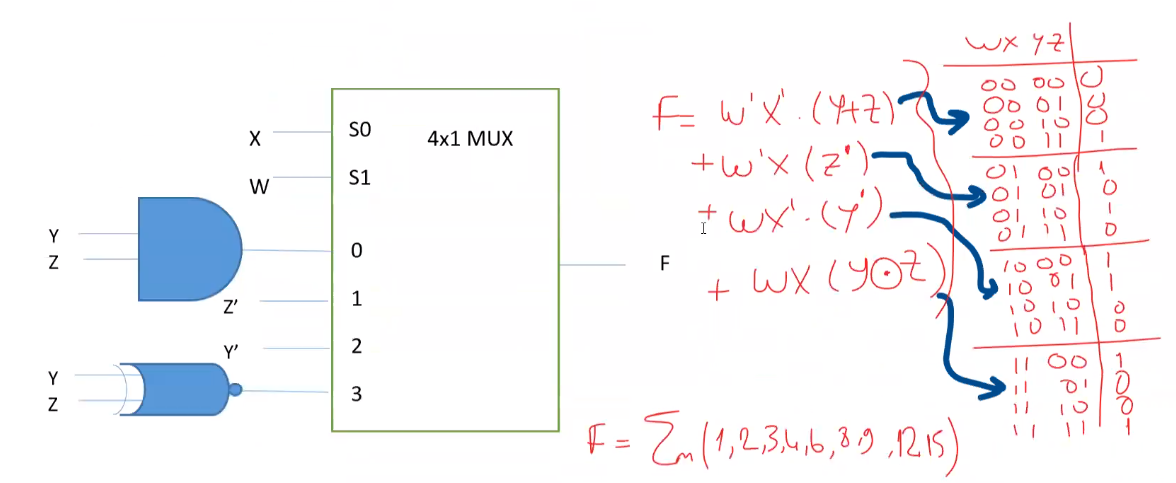 X S0 4x1 MUX
W S1
Y
Z
0
Z' 1
Y' 2
Y
Z
3
F
F = W'X'.(Y+Z)
+ W'X (Z')
+ WX'.(Y')
+ WX (Y⊙Z)
F = Σm(1,2,3,4,6,8,9,12,15)
WX YZ
00 00 0
00 01 0
00 10 0
00 11 1
01 00 1
01 01 0
01 10 1
01 11 0
10 00 1
10 01 1
10 10 0
10 11 0
11 00 1
11 01 0
11 10 0
11 11 1